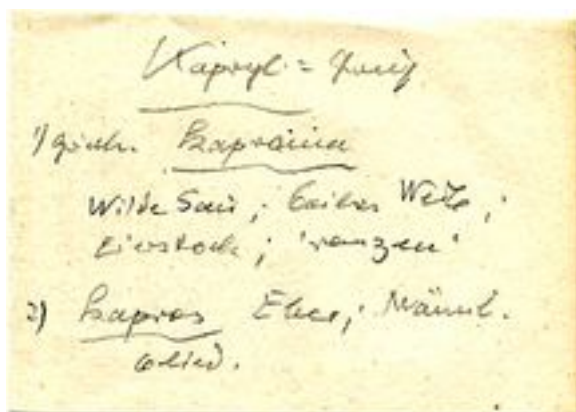 Kapryl =
1) griech. Kapraina
Wilde Sau; geiles Weib;
Eierstock; 'ranzen'
2) Kapros Eber; Männl.
Glied.